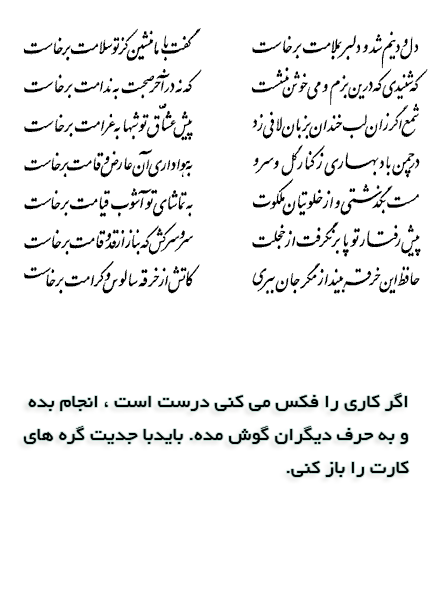 دل و دینم شد و دلبر بملامت برخاست گفت با ما منشین کز تو سلامت برخاست
که شنیدی که درین بزم دمی خوش بنشست که نه در آخر صحبت به ندامت برخاست
شمع اگر زان لب خندان بزبان لافی زد پیش عشاق تو شبها به غرامت برخاست
در چمن باد بهاری ز کنار گل و سرو به هواداری آن عارض و قامت برخاست
مست بگذشتی و از خلوتیان ملکوت به تماشای تو آشوب قیامت برخاست
پیش رفتار تو پا برنگرفت از خجلت سرو سرکش که بناز از قد و قامت برخاست
حافظ این خرقه بینداز مگر جان ببری کاتش از خرقه سالوس و کرامت برخاست
اگر کاری را فکس می کنی درست است ، انجام بده
و به حرف دیگران گوش مده. بایدبا جدیت گره های
کارت را باز کنی.